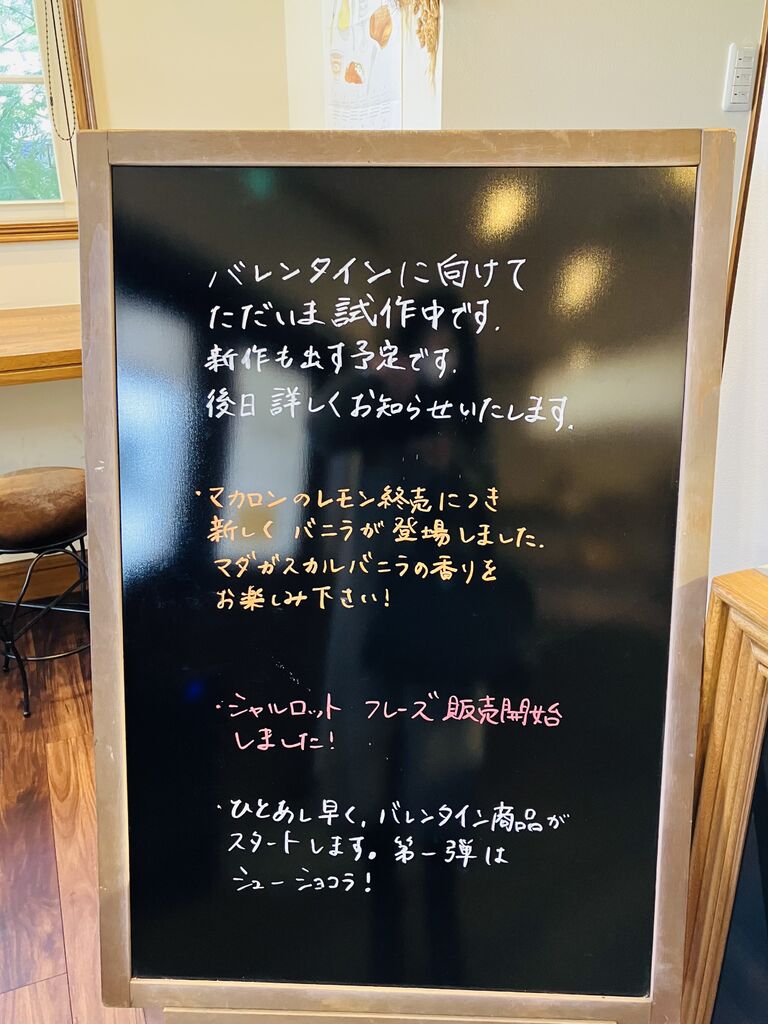 バレンタインに向けて
ただいま試作中です.
新作も出す予定です.
後日 詳しくお知らせいたします.
・マカロンのレモン終売につき
新しく バニラが登場しました.
マダガスカルバニラの香りを
お楽しみ下さい!
・シャルロット フレーズ 販売開始
しました!
・ひとあし早く, バレンタイン商品が
スタートします。第一弾は
シュー ショコラ!